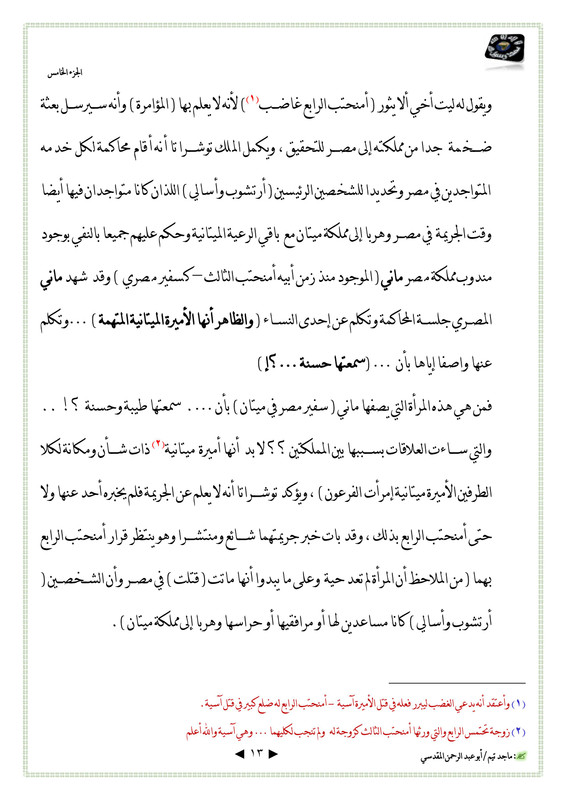 الجزء الخامس
ويقول له ليت أخي ألا يثور ( أمنحتب الرابع غاضب(١)) لأنه لا يعلم بها ( المؤامرة ) وأنه سيرسل بعثة
ضخمة جدا من مملكته إلى مصر للتحقيق ، ويكمل الملك توشراتا أنه أقام محاكمة لكل خدمه
المتواجدين في مصر وتحديدا للشخصين الرئيسين ( أرتشوب وأسالي ) اللذان كانا متواجدان فيها أيضا
وقت الجريمة في مصر وهربا إلى مملكة ميتان مع باقي الرعية الميتانية وحكم عليهم جميعا بالنفي بوجود
مندوب مملكة مصر ماني ( الموجود منذ زمن أبيه أمنحتب الثالث – كسفير مصري ) وقد شهد ماني
المصري جلسة المحاكمة وتكلم عن إحدى النساء ( والظاهر أنها الأميرة الميتانية المتهمة ) ... وتكلم
عنها واصفا إياها بأن ... (سمعتها حسنة ...؟! )
فمن هي هذه المرأة التي يصفها ماني ( سفير مصر في ميتان ) بأن .... سمعتها طيبة وحسنة ؟! ..
والتي ساءت العلاقات بسببها بين المملكتين ؟؟ لا بد أنها أميرة ميتانية(٢) ذات شأن ومكانة لكلا
الطرفين الأميرة ميتانية إمرأت الفرعون ) ، ويؤكد توشراتا أنه لا يعلم عن الجريمة فلم يخبره أحد عنها ولا
حتى أمنحتب الرابع بذلك ، وقد بات خبر جريمتهما شائع ومنتشرا وهو ينتظر قرار أمنحتب الرابع
بهما ( من الملاحظ أن المرأة لم تعد حية وعلى ما يبدوا أنها ماتت ( قتلت ) في مصر وأن الشخصين (
أرتشوب وأسالي ) كانا مساعدين لها أو مرافقيها أو حراسها وهربا إلى مملكة ميتان ) .
(١) وأعتقد أنه يدعي الغضب ليبرر فعله في قتل الأميرة آسية - أمنحتب الرابع له ضلع كبير في قتل آسية .
(٢) زوجة تحتمس الرابع والتي ورثها أمنحتب الثالث كزوجة له ولم تنجب لكليهما ... وهي آسية والله أعلم
: ماجد تيم / أبو عبد الرحمن المقدسي
◄ ١٣ ►